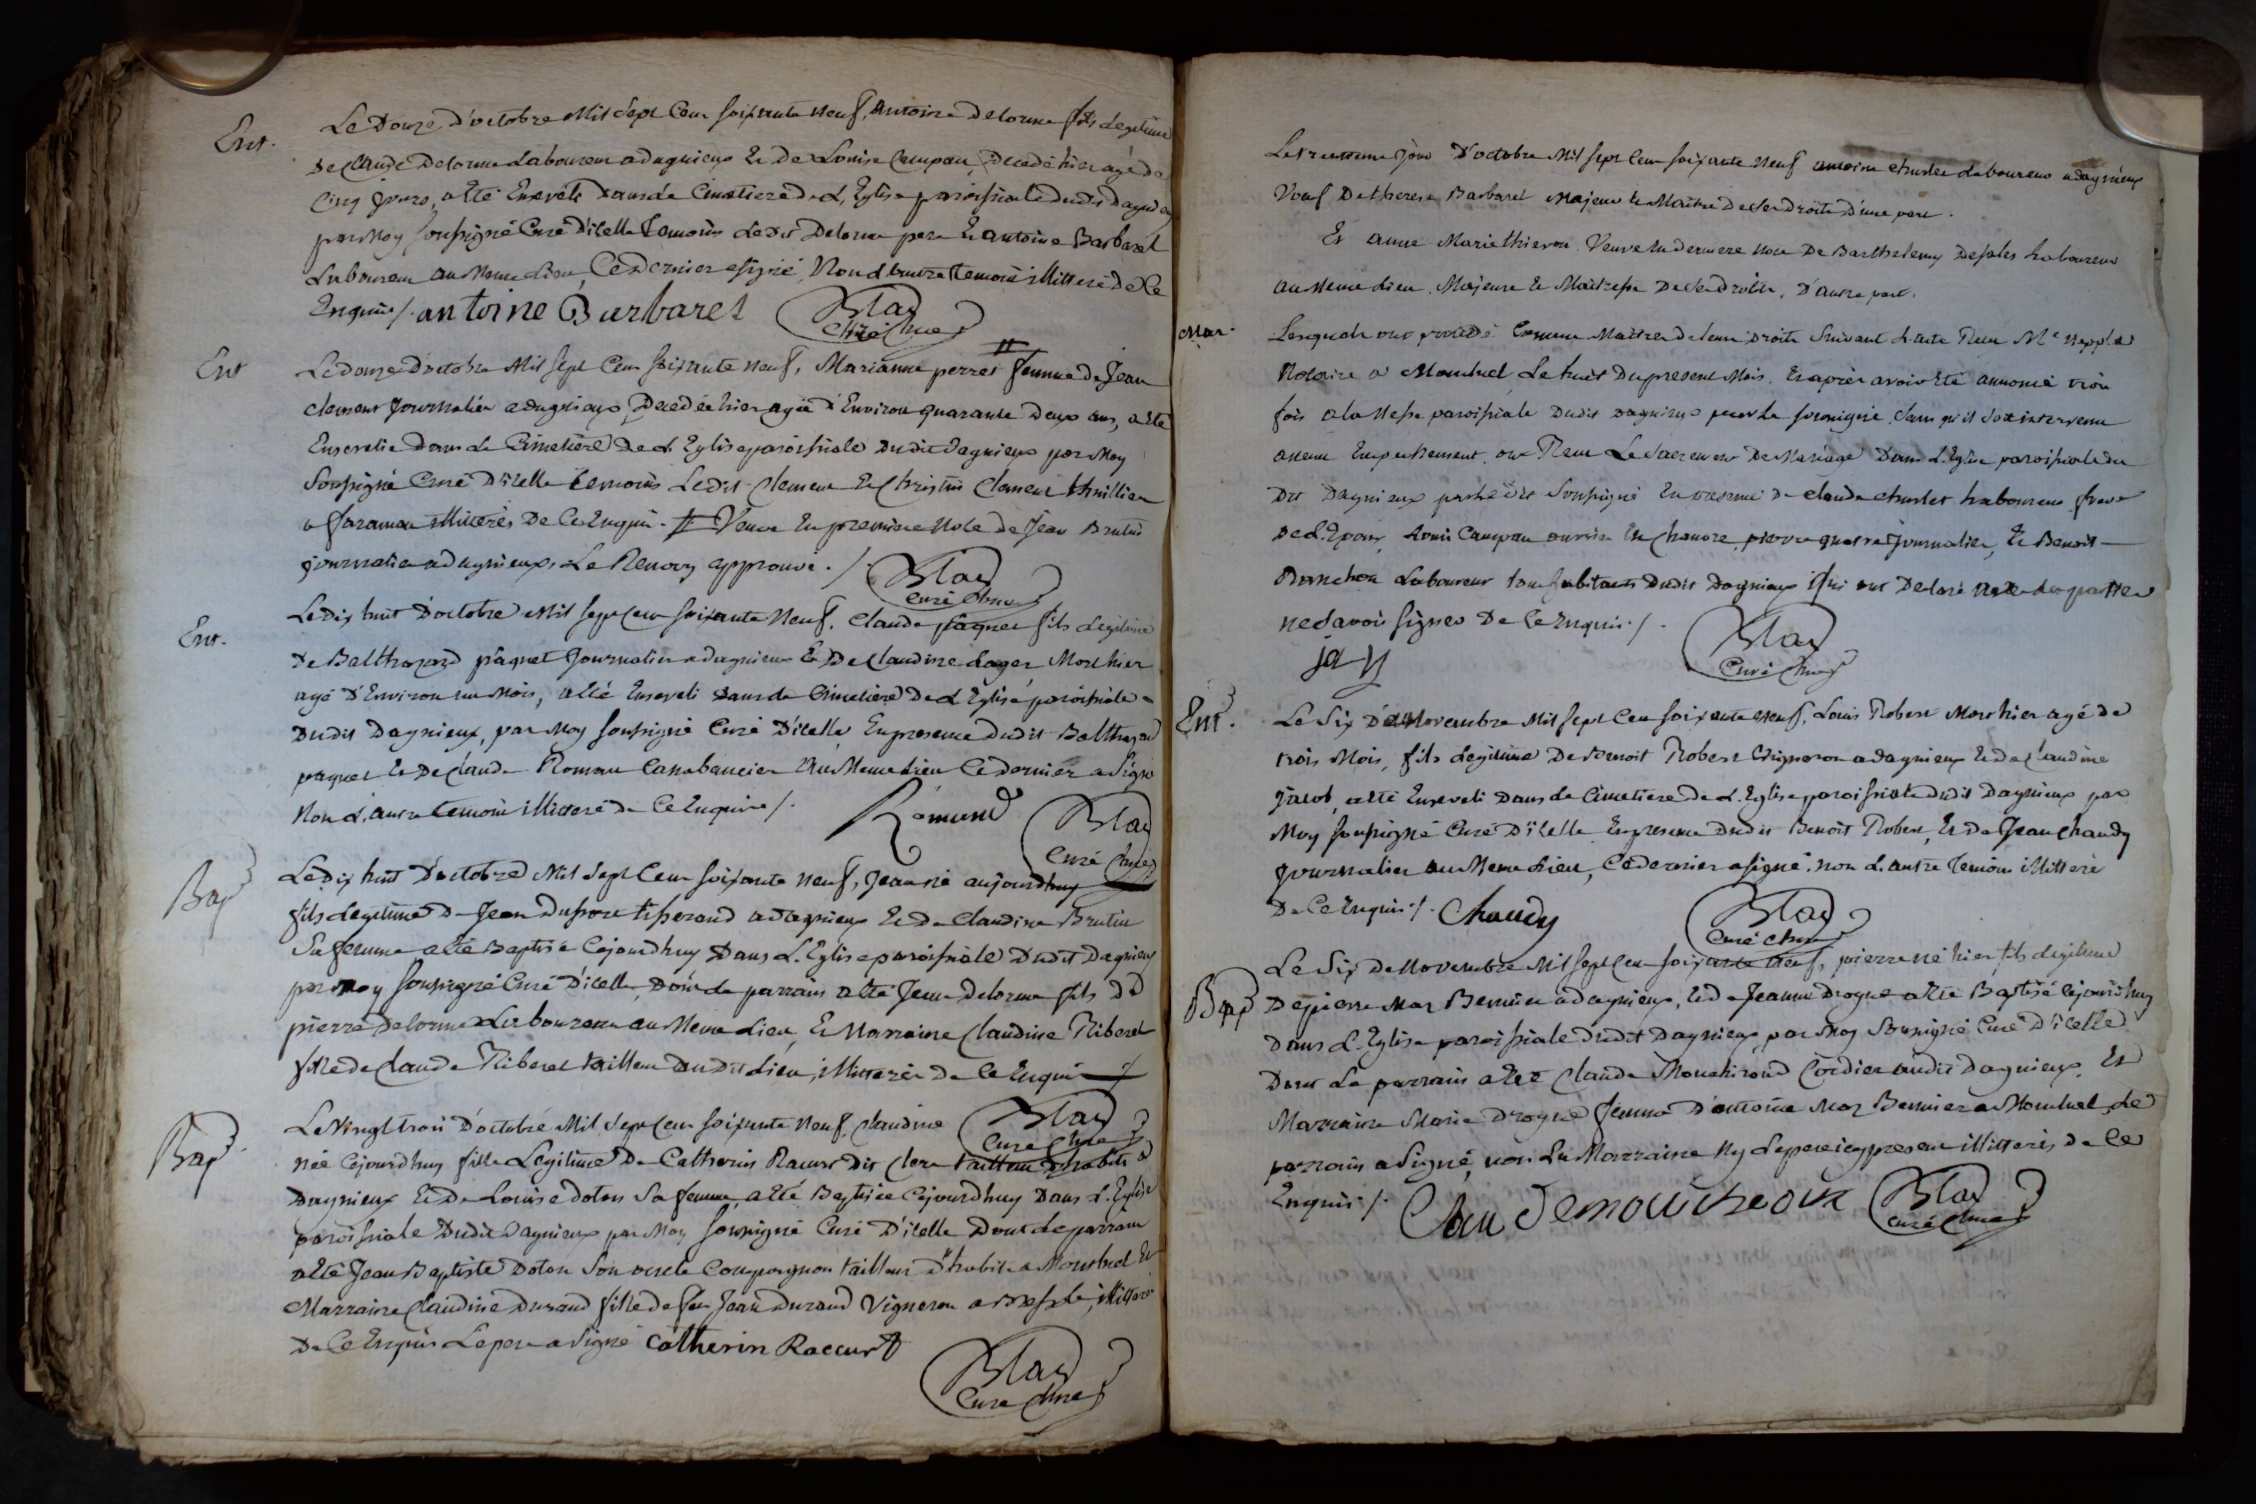 Ent.
Le Douze d'octobre Mil Sept Cent soixante neuf, antoine Delorme fils Legitime
de Claude Delorme Laboureur a dagnieux Et De Louise Campan, Decedé hier agé de
Cinq jours, a Eté Enseveli Dans le Cimetiere de L'Eglise paroissiale dudit dagnieux
par Moy soussigné Curé D'icelle temoins Ledit Delorme pere Et antoine Barbaret
Laboureur au Meme Lieu, Ce Dernier a signé Non L'autre temoin illitteré de Ce
Enquis /. antoine Barbaret
Blad
Curé
Ent
Le douze d'octobre Mil sept Cent soixante neuf, Marianne perret femme de Jean
clement Journalier a dagnieux, Decedée hier agée d'Environ quarante Deux ans, a Eté
Ensevelie Dans Le Cimetiere De L'Eglise paroissiale Dudit Dagnieux par Moy
Soussigné Curé D'icelle temoins Ledit Clement Et Clement
a faraman illitterés De Ce Enquis. Veuve En premiere Noce de Jean Brutin
journalier a dagnieux, Le Renvoy approuvé ./.
Blad
Curé
Ent.
Le Dix huit d'octobre Mil Sept Cent soixante Neuf, Claude paquet fils Legitime
de Balthazard paquet Journalier a dagnieux Et De Claudine Lager Mort hier
agé d'Environ un Mois, a Eté Enseveli Dans le Cimetiere De L'Eglise paroissiale
Dudit Dagnieux, par Moy soussigné Curé D'icelle En presence dudit Balthazard
paquet Et De Claude Roman Cabaretier Au Meme Lieu Ce dernier a Signé
Non L'autre temoin illitteré de Ce Enquis /.
Romand
Blad
Curé
Bap
Le Dix huit D'octobre Mil Sept Cent Soixante neuf, Jean né aujourdhuy
fils Legitime de Jean Duport tisserand a dagnieux Et De Claudine Brutin
Sa femme a Eté Baptisé Cejourdhuy Dans L'Eglise paroissiale Dudit Dagnieux
par Moy soussigné Curé D'icelle, Dont Le parrain a Eté Jean Delorme fils De
pierre Delorme Laboureur au Meme Lieu, Et Marraine Claudine Riberet
fille de Claude Riberet tailleur Dudit Lieu, illitterés de Ce Enquis /.
Blad
Curé
Bap
Le Vingt trois D'octobre Mil Sept Cent Soixante Neuf, Claudine
née Cejourdhuy fille Legitime De Catherin Racurt dit Clere tailleur d'habits a
Dagnieux Et De Louise doton Sa femme, a Eté Baptisée Cejourdhuy Dans L'Eglise
paroissiale Dudit Dagnieux par Moy soussigné Curé D'icelle Dont Le parrain
a Eté Jean Baptiste Doton Son oncle Compagnon tailleur d'habits a Montluel Et
Marraine Claudine Durand fille de feu Jean Durand Vigneron a illitteré
De Ce Enquis Le pere a Signé Catherin Raccurt
Blad
Curé
Le trentieme Jour D'octobre Mil sept Cent soixante Neuf antoine Laboureur a dagnieux
Veuf De therese Barbaret Majeur Et Maitre De Ses Droits D'une part.
Et anne Marie thievon Veuve En derniere Noce De Barthelemy Desales Laboureur
au Meme Lieu, Majeure Et Maitresse De Ses Droits, D'autre part.
Mar.
Lesquels ont procedé Comme Maitres de leurs Droits Suivant L'acte Reçu Me
Notaire a Montluel Le huit Du present Mois. Et apres avoir Eté annoncé trois
fois a la Messe paroissiale Dudit dagnieux par Le soussigné Sans qu'il Soit intervenu
aucun Empechement, ont Reçu Le Sacrement De Mariage Dans L'Eglise paroissiale Du
Dit Dagnieux par Ledit Soussigné En presence de Claude Laboureur frere
De L'Epoux, Louis Campan ouvrier En Chanvre, pierre journalier, Et Benoit
Laboureur tous habitants Dudit Dagnieux qui ont Declaré
ne Savoir signer De Ce Enquis ./.
Blad
Curé
Ent.
Le Six De Novembre Mil Sept Cent soixante Neuf, Louis Robert Mort hier agé de
trois Mois, fils Legitime De Benoit Robert Vigneron a dagnieux Et De Claudine
Jacob, a Eté Enseveli Dans Le Cimetiere De L'Eglise paroissiale Dudit Dagnieux par
Moy soussigné Curé D'icelle En presence Dudit Benoit Robert, Et De Jean Chaudy
Journalier au Meme Lieu, Ce dernier a signé non L'autre temoin illitteré
De Ce Enquis /. Chaudy
Blad
Curé
Bap
Le Six De Novembre Mil Sept Cent soixante Neuf, pierre né hier fils Legitime
De pierre Mas Bennier a dagnieux, Et De Jeanne Drogue a Eté Baptisé Cejourdhuy
Dans L'Eglise paroissiale dudit Dagnieux par Moy Soussigné Curé D'icelle
Dont Le parrain a Eté Claude Mouchiroud Cordier audit Dagnieux, Et
Marraine Marie Drogue femme D'antoine Mas Bennier a Montluel, Le
parrain a Signé, non La Marraine Ny Le pere icy present illitterés de Ce
Enquis /.
Blad
Curé